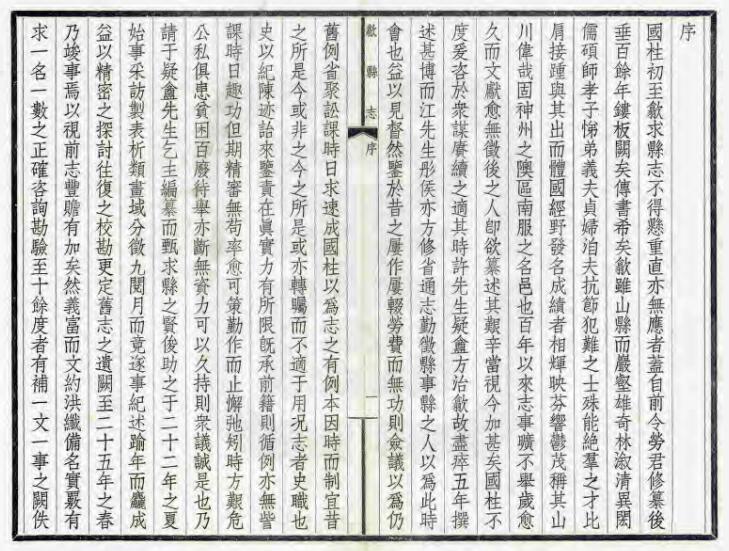 序
國柱初至歙求縣志不得懸重直亦無應者蓋自前令勞君修纂後
垂百餘年鏤板闕矣傳書希矣歙雖山縣而巖壑雄奇林漵清異閎
儒碩師孝子悌弟義夫貞婦洎夫抗節犯難之士殊能絶羣之才比
肩接踵與其出而體國經野發名成績者相輝映芬響鬱茂稱其山
川偉哉固神州之隩區南服之名邑也百年以來志事曠不舉歲愈
久而文獻愈無徵後之人卽欲纂述其艱辛當視今加甚矣國柱不
度爰咨於衆謀賡續之適其時許先生疑盦方治歙故盡瘁五年撰
述甚博而江先生彤侯亦方修省通志勤徵縣事縣之人以爲此時
會也益以見督然鑒於昔之屢作屢輟勞費而無功則僉議以爲仍
歙縣志
序
一
舊例省聚訟課時日求速成國柱以爲志之有例本因時而制宜昔
之所是今或非之今之所是或亦轉矚而不適于用况志者史職也
史以紀陳迹詒來鑒責在眞實力有所限旣承前籍則循例亦無訾
課時日趣功但期精審無苟率愈可策勤作而止懈弛矧時方艱危
公私俱患貧困百廢待舉亦斷無資力可以久持則衆議誠是也乃
請于疑盦先生乞主編纂而甄求縣之賢俊助之于二十二年之夏
始事采訪製表析類畫域分徵九閱月而竟逐事紀述踰年而麤成
益以精密之探討往復之校勘更定舊志之遺闕至二十五年之春
乃竣事焉以視前志豐贍有加矣然義富而文約洪纖備名實覈有
求一名一數之正確咨詢勘驗至十餘度者有補一文一事之闕佚